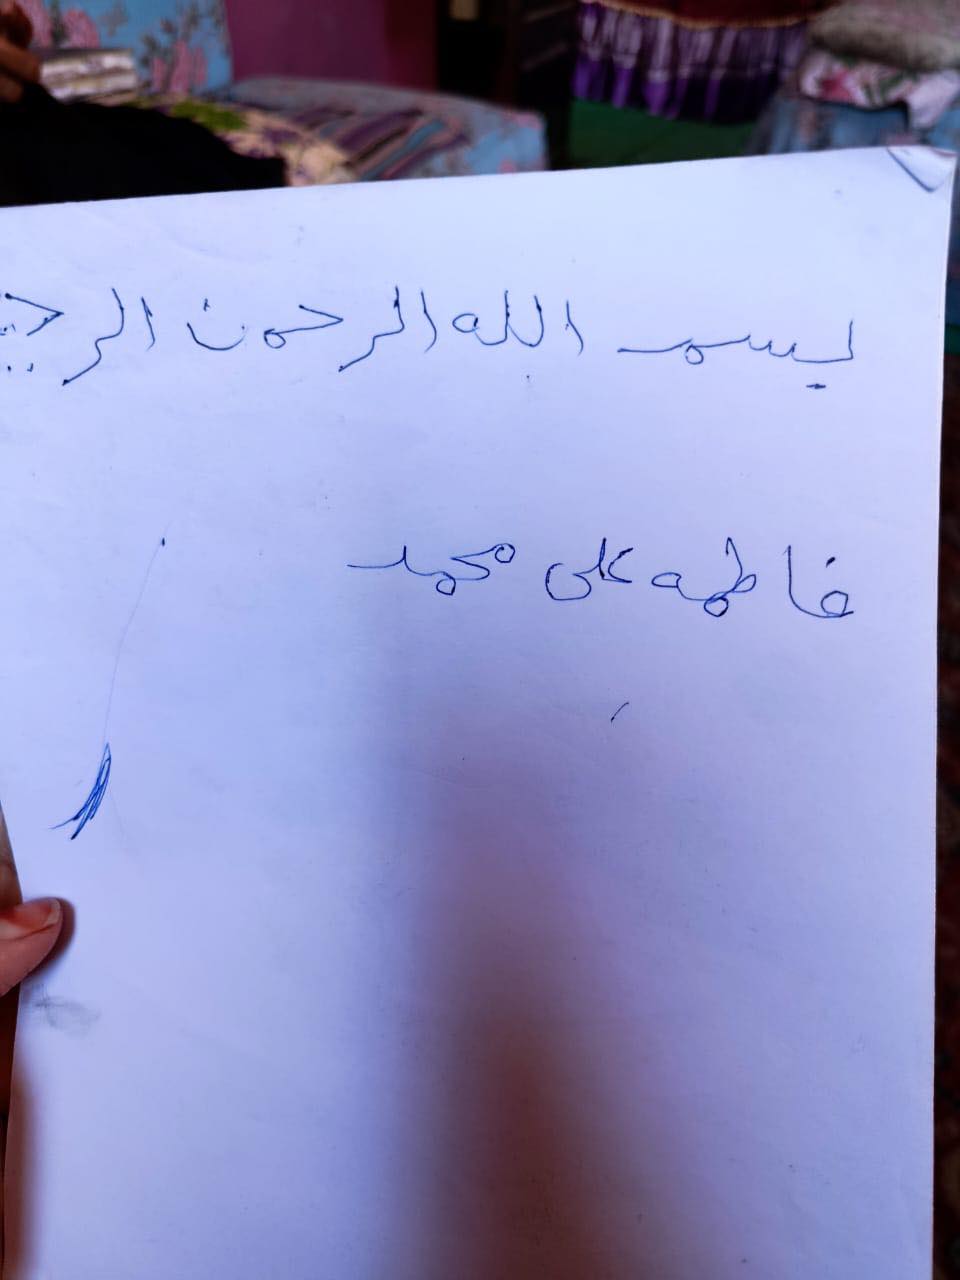 بسم الله الرحمن الرحيم
فاطمه على محمد